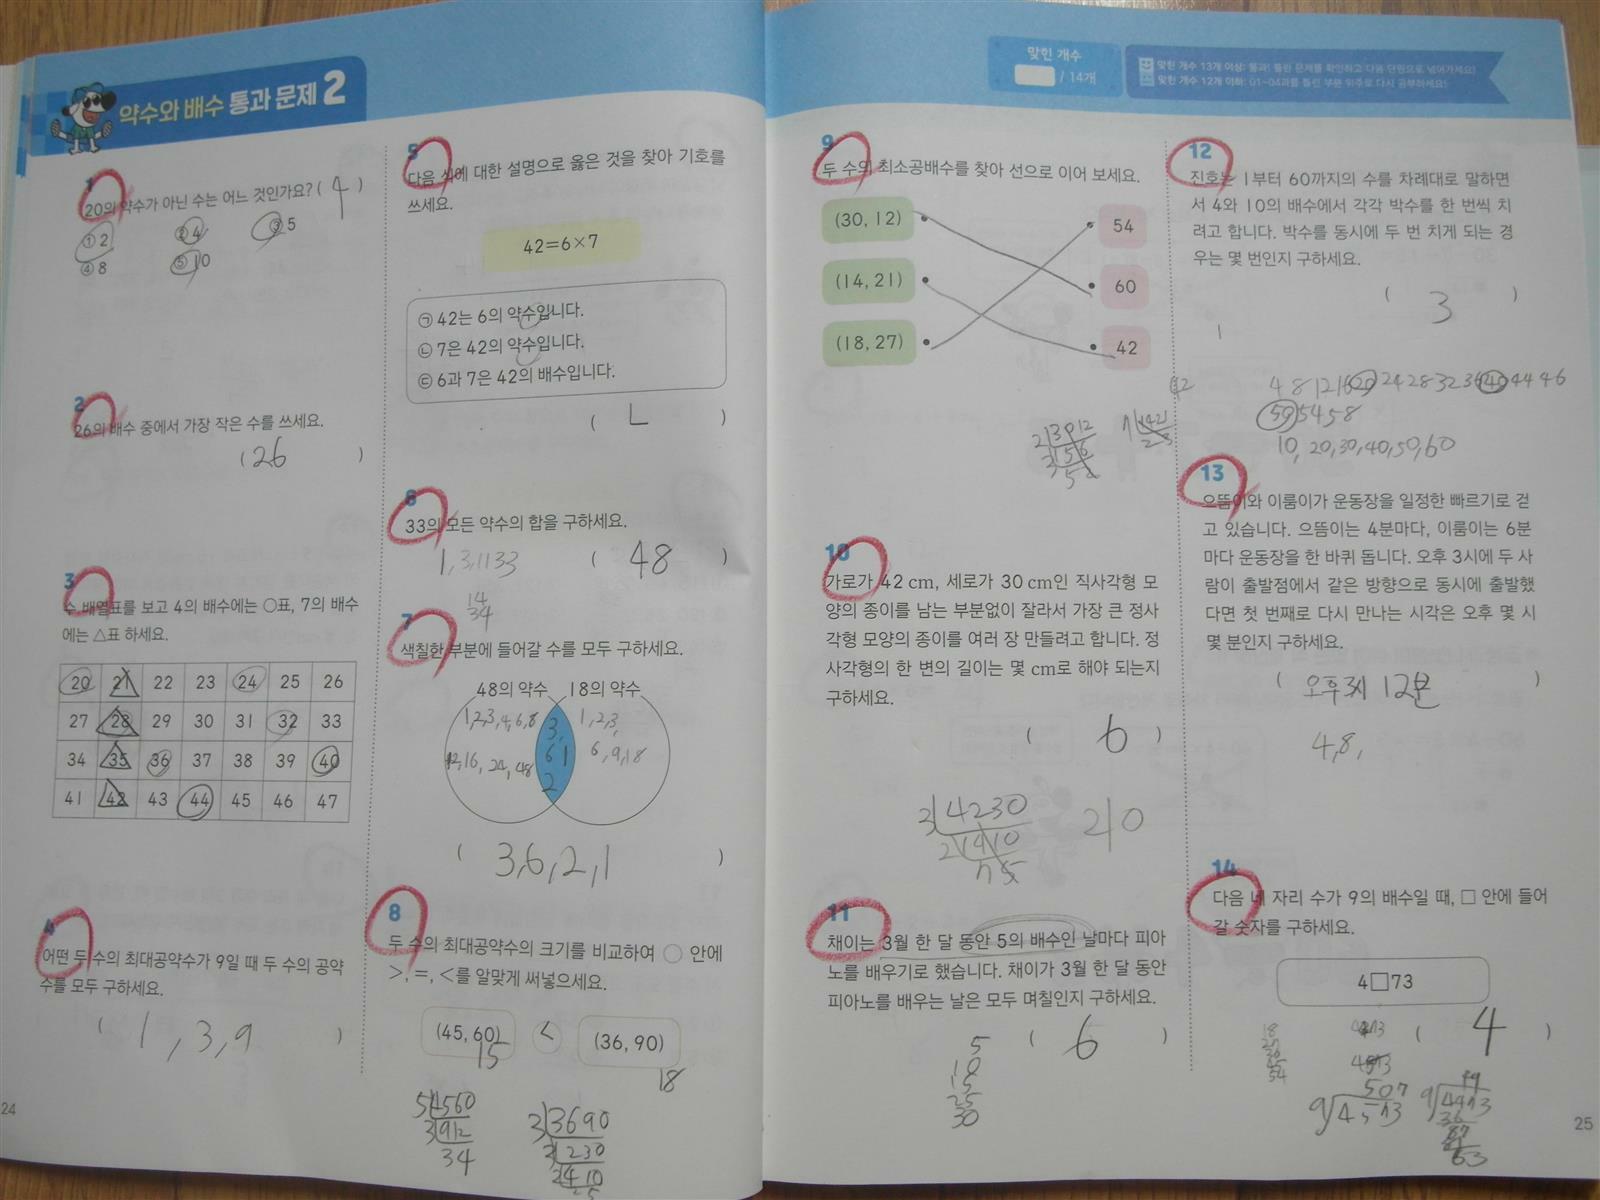 약수와 배수 통과 문제 2
1
20의 약수가 아닌 수는 어느 것인가요? ( 4 )
① 2 ② 4 ③ 5
④ 8 ⑤ 10
2
26의 배수 중에서 가장 작은 수를 쓰세요.
( 26 )
3
수 배열표를 보고 4의 배수에는 ○표, 7의 배수
에는 △표 하세요.
20 21 22 23 24 25 26
27 28 29 30 31 32 33
34 35 36 37 38 39 40
41 42 43 44 45 46 47
4
어떤 두 수의 최대공약수가 9일 때 두 수의 공약
수를 모두 구하세요.
( 1, 3, 9 )
24
5
다음 식에 대한 설명으로 옳은 것을 찾아 기호를
쓰세요.
42=6×7
㉠ 42는 6의 약수입니다.
㉡ 7은 42의 약수입니다.
㉢ 6과 7은 42의 배수입니다.
( ㄴ )
6
33의 모든 약수의 합을 구하세요.
1, 3, 11 33 ( 48 )
14
34
7
색칠한 부분에 들어갈 수를 모두 구하세요.
48의 약수 18의 약수
1,2,3,4,6,8 3, 1,2,3,
12,16,24,48 6 1 6,9,18
2
( 3,6,2,1 )
8
두 수의 최대공약수의 크기를 비교하여 ○ 안에
>, =, <를 알맞게 써넣으세요.
(45, 60) < (36, 90)
15 18
5 45 60 3 36 90
3 9 12 12 30
3 4 4 10
2 5
맞힌 개수
/ 14개
맞힌 개수 13개 이상: 통과! 틀린 문제를 확인하고 다음 단원으로 넘어가세요!
맞힌 개수 12개 이하: 01~04과를 틀린 부분 위주로 다시 공부하세요!
9
두 수의 최소공배수를 찾아 선으로 이어 보세요.
(30, 12) 54
(14, 21) 60
(18, 27) 42
2 30 12 7 14 21
3 15 6 2 3
5 2
10
가로가 42 cm, 세로가 30 cm인 직사각형 모
양의 종이를 남는 부분없이 잘라서 가장 큰 정사
각형 모양의 종이를 여러 장 만들려고 합니다. 정
사각형의 한 변의 길이는 몇 cm로 해야 되는지
구하세요.
( 6 )
3 42 30 210
2 14 10
7 5
11
채이는 3월 한 달 동안 5의 배수인 날마다 피아
노를 배우기로 했습니다. 채이가 3월 한 달 동안
피아노를 배우는 날은 모두 며칠인지 구하세요.
( 6 )
5
10
15
25
30
12
진호는 1부터 60까지의 수를 차례대로 말하면
서 4와 10의 배수에서 각각 박수를 한 번씩 치
려고 합니다. 박수를 동시에 두 번 치게 되는 경
우는 몇 번인지 구하세요.
( 3 )
4 8 12 16 20 24 28 32 36 40 44 46
50 54 58
10, 20, 30, 40, 50, 60
13
으뜸이와 이룸이가 운동장을 일정한 빠르기로 걷
고 있습니다. 으뜸이는 4분마다, 이룸이는 6분
마다 운동장을 한 바퀴 돕니다. 오후 3시에 두 사
람이 출발점에서 같은 방향으로 동시에 출발했
다면 첫 번째로 다시 만나는 시각은 오후 몇 시
몇 분인지 구하세요.
( 오후 3시 12분 )
4,8,
14
다음 네 자리 수가 9의 배수일 때, □ 안에 들어
갈 숫자를 구하세요.
4□73
( 4 )
18
27
36
45
54
507
25